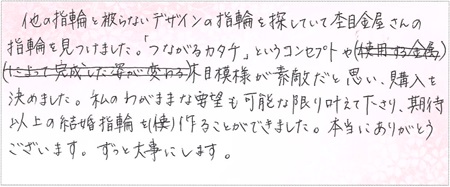 他の指輪と被らないデザインの指輪を探していて杢目金屋さんの
指輪を見つけました。「つながるカタチ」というコンセプトや(使用する金属)
(によって完成した姿が変わる)木目模様が素敵だと思い、購入を
決めました。私のわがままな要望も可能な限り叶えて下さり、期待
以上の結婚指輪を(使)作ることができました。本当にありがとう
ございます。ずっと大事にします。